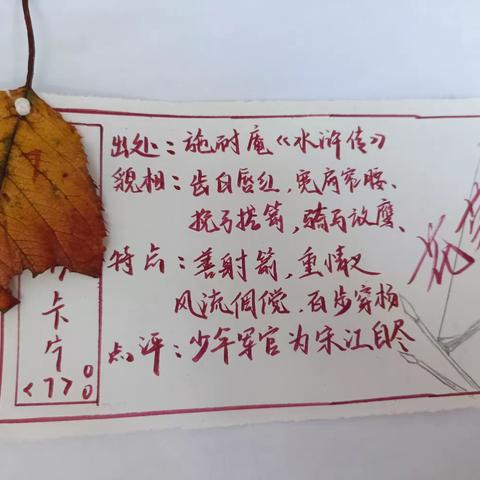 出处：施耐庵《水浒传》
貌相：齿白唇红，宽肩窄腰、
挽弓搭箭，骑马放鹰、
特点：善射箭，重情义
风流倜傥，百步穿杨
点评：少年军官为宋江自尽
花
卡
<1>